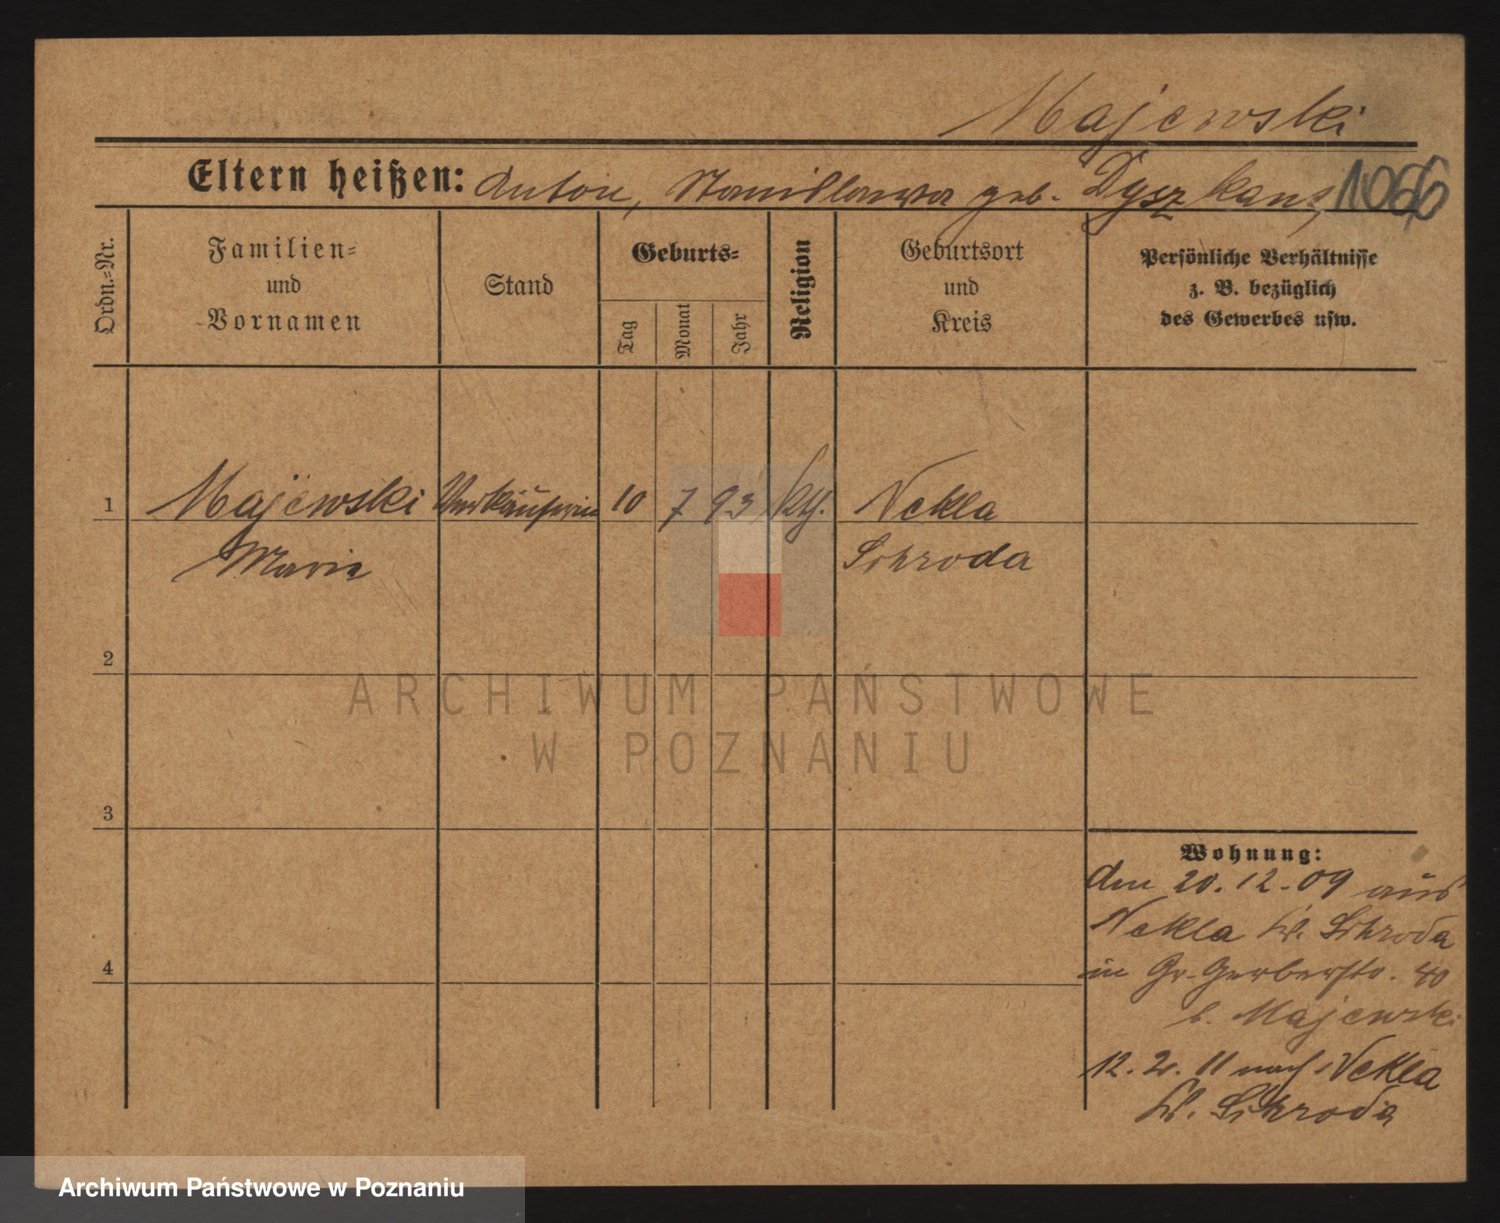 Majewski
Eltern heißen: Anton, Stanislawa geb. 1066
Ordn.-Nr.
Familien-
und
Vornamen
Stand
Geburts-
Tag
Monat
Jahr
Religion
Geburtsort
und
Kreis
Persönliche Verhältnisse
z. B. bezüglich
des Gewerbes usw.
1 Majewski Verkäuferin 10 7 93 kth. Nekla
Marie Schroda
2
3
4
Wohnung:
den 20.12.09 aus
Nekla Kr. Schroda
in Gr. Gerberstr. 40
b. Majewski
12. 2. 11 nach Nekla
Kr. Schroda
ARCHIWUM PAŃSTWOWE
W POZNANIU
Archiwum Państwowe w Poznaniu